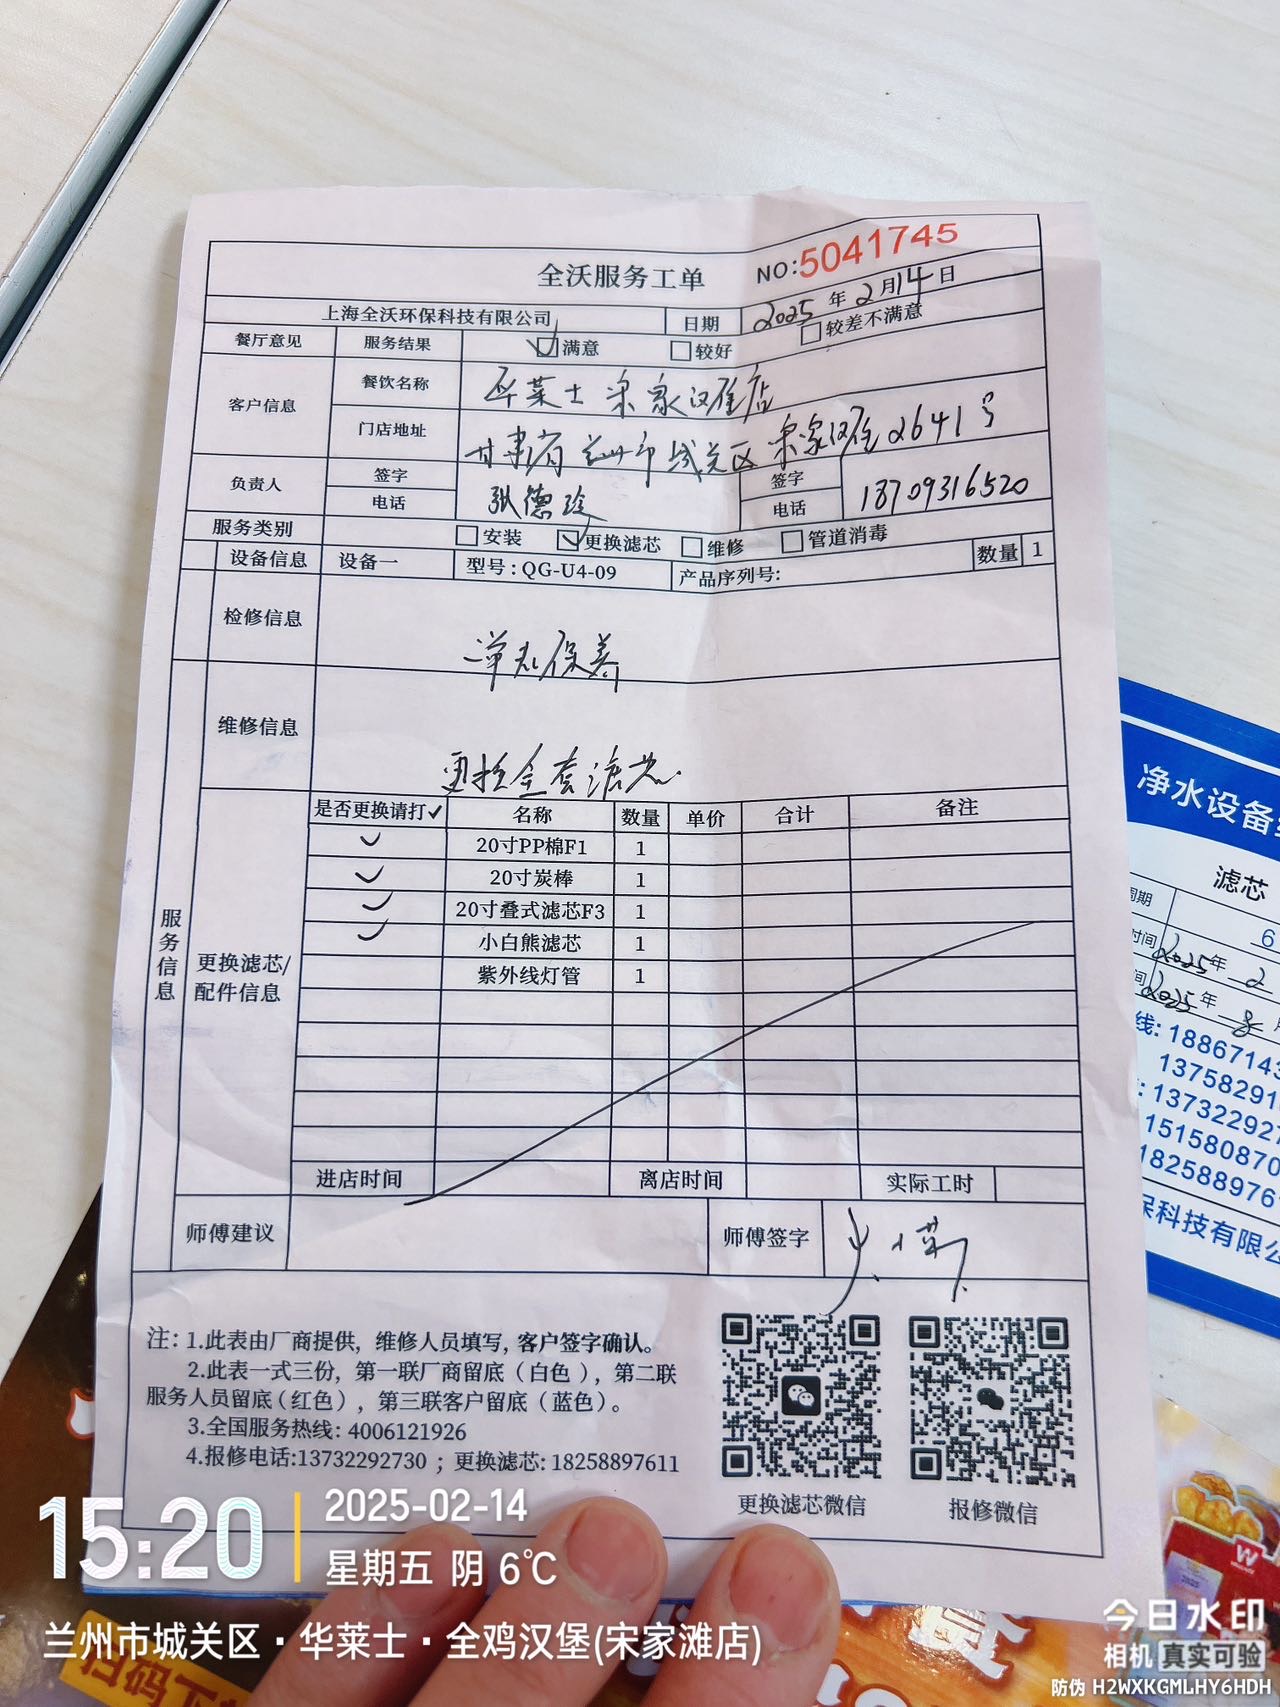 全沃服务工单 NO:5041745
上海全沃环保科技有限公司 日期 2025年2月14日
餐厅意见 服务结果 满意 较好 较差不满意
客户信息 餐饮名称 华莱士宋家滩店
门店地址 甘肃省兰州市城关区宋家滩2641号
负责人 签字 张德珍 签字
电话 电话 18709316520
服务类别 安装 更换滤芯 维修 管道消毒
设备信息 设备一 型号:QG-U4-09 产品序列号: 数量 1
检修信息 单点保养
维修信息 更换全套滤芯.
服务信息
更换滤芯/配件信息
是否更换请打✓ 名称 数量 单价 合计 备注
✓ 20寸PP棉F1 1
✓ 20寸炭棒 1
✓ 20寸叠式滤芯F3 1
✓ 小白熊滤芯 1
紫外线灯管 1
进店时间 离店时间 实际工时
师傅建议 师傅签字
注: 1.此表由厂商提供, 维修人员填写, 客户签字确认。
2.此表一式三份, 第一联厂商留底 (白色), 第二联
服务人员留底 (红色), 第三联客户留底 (蓝色)。
3.全国服务热线: 4006121926
4.报修电话:13732292730 ; 更换滤芯: 18258897611
更换滤芯微信 报修微信
净水设备
滤芯
周期 6
时间 2025年 2
间 2025年 8
线: 18867143
13758291
: 13732292
15158087 0
182588976
保科技有限公
15:20
2025-02-14
星期五 阴 6℃
兰州市城关区·华莱士·全鸡汉堡(宋家滩店)
扫码
今日水印
相机 真实可验
防伪 H2WXKGMLHY6HDH